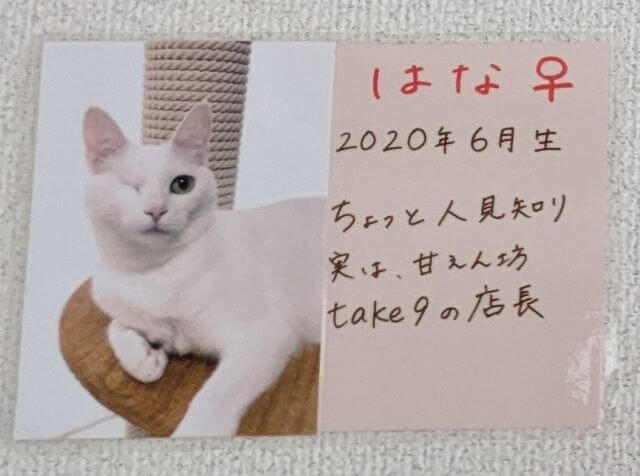 はな♀
2020年6月生
ちょっと人見知り
実は、甘えん坊
take9の店長